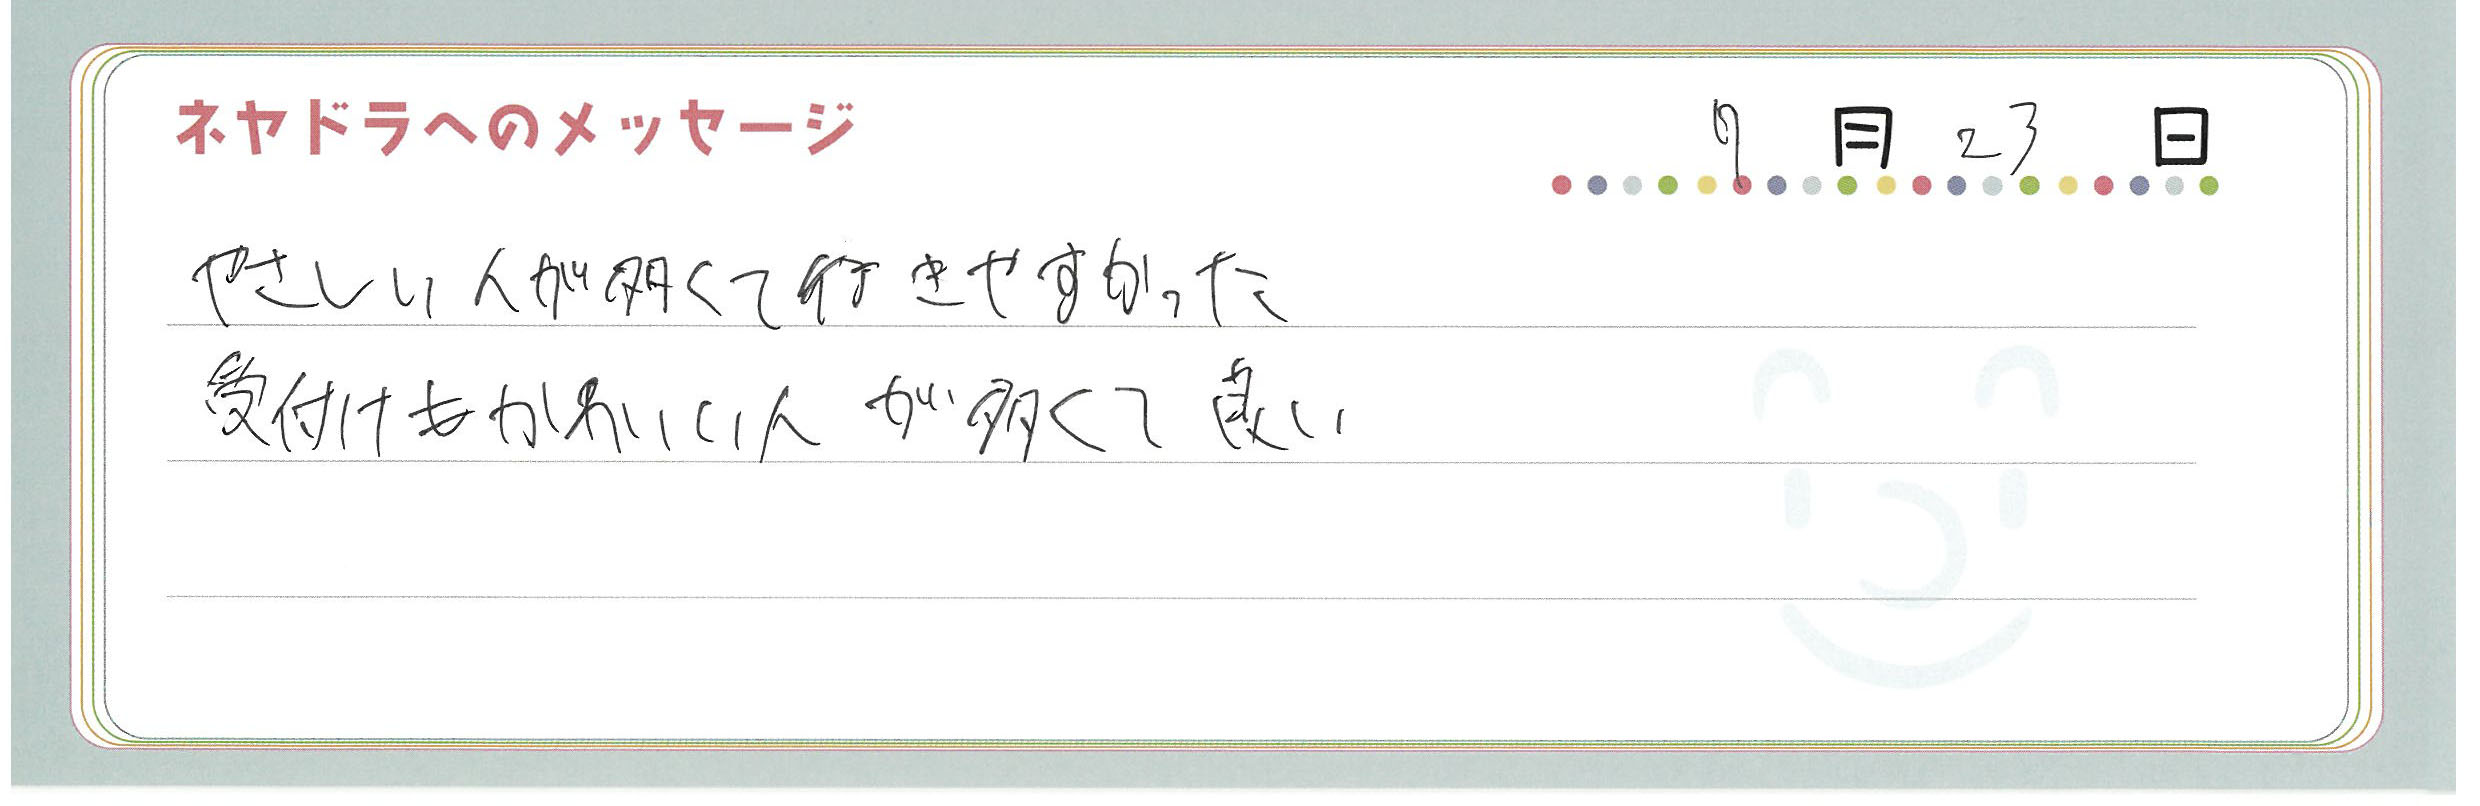 ネヤドラへのメッセージ
9月23日
やさしい人が多くて行きやすかった
受付けもかわいい人が多くて良い